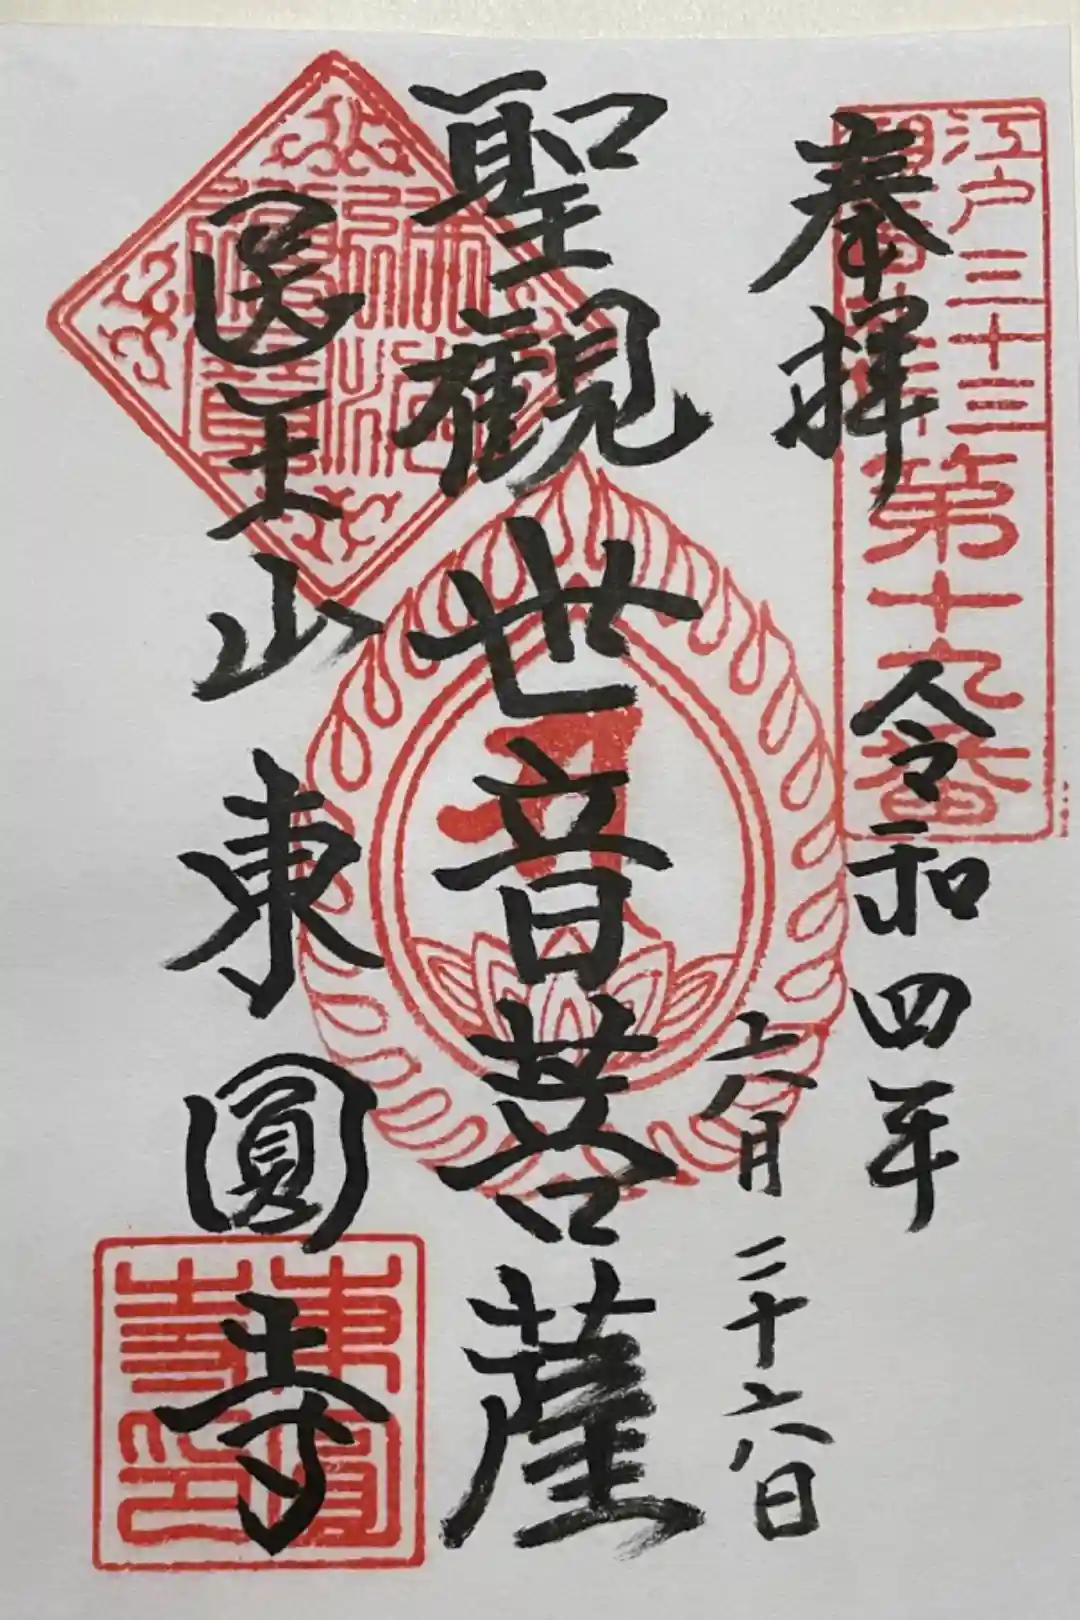 江戸三十三
観音札所第十九番
奉拝
令和四年
六月二十六日
聖觀世音菩薩
医王山東圓寺
東圓
寺印